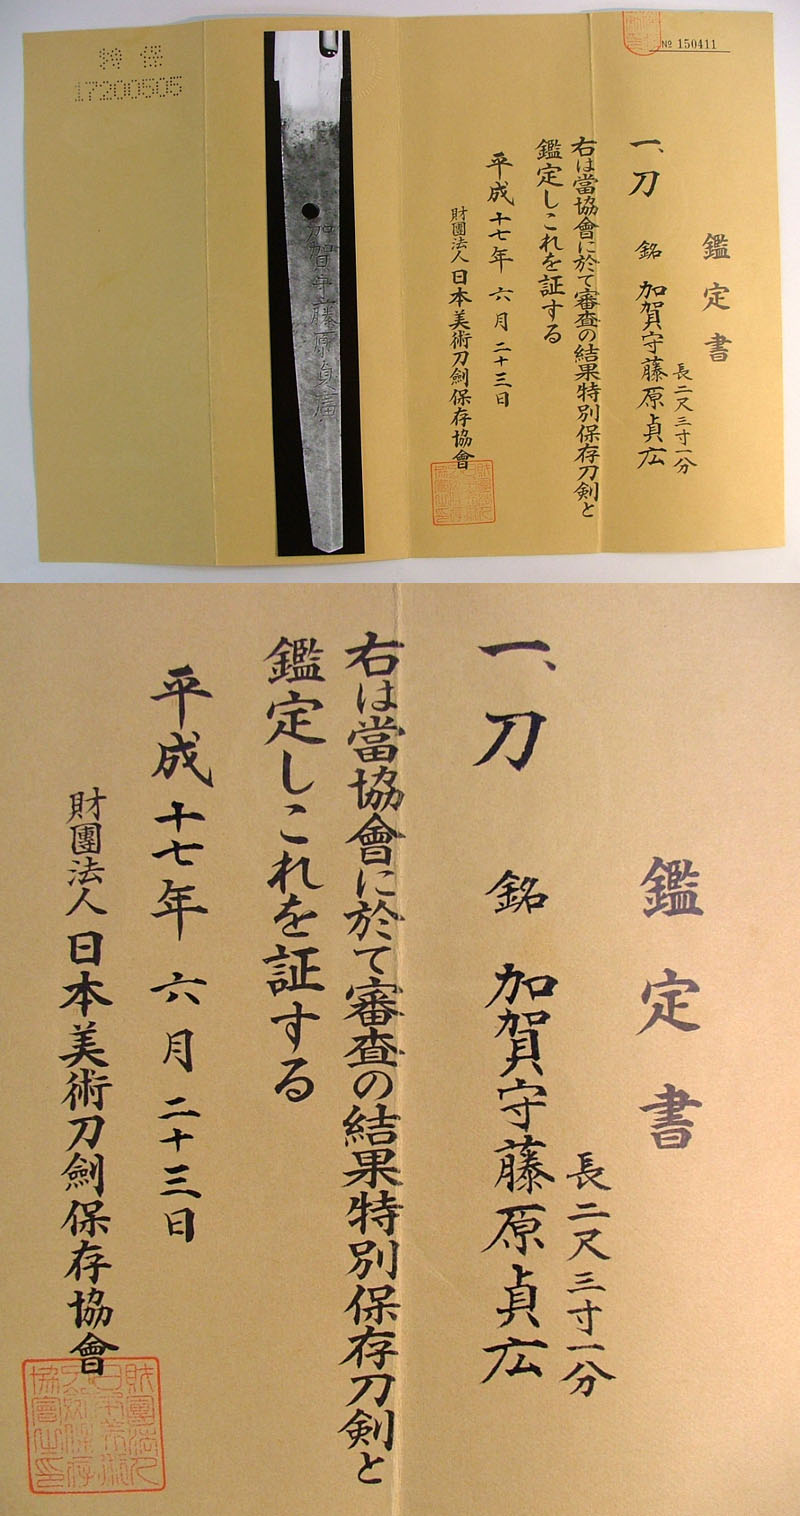 № 150411
鑑定書
一、刀 銘 加賀守藤原貞広
長二尺三寸一分
右は當協會に於て審査の結果特別保存刀剣と
鑑定しこれを証する
平成十七年六月二十三日
財團法人日本美術刀劍保存協會
加賀守藤原貞廣
特保
17200505
鑑定書
一、刀 銘 加賀守藤原貞広
長二尺三寸一分
右は當協會に於て審査の結果特別保存刀剣と
鑑定しこれを証する
平成十七年六月二十三日
財團法人日本美術刀劍保存協會
財團法人
日本美術
刀劍保存
協會之印